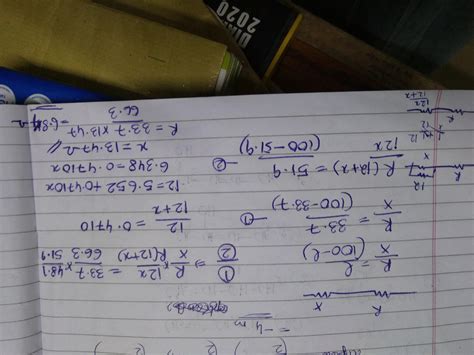 = -4 m
R X
R/X = l/(100-l)
R/X = 33.7/(100-33.7) —①
R(12+x)/12x = 51.9/(100-51.9) —②
①/② ⇒ R/x × 12x/R(12+x) = 33.7/66.3 × 48.1/51.9
12/12+x = 0.4710
12 = 5.652+0.4710x
6.348 = 0.4710x
x = 13.47Ω //
R = 33.7×13.47/66.3
12
X
R
12x/12+x
R
2020